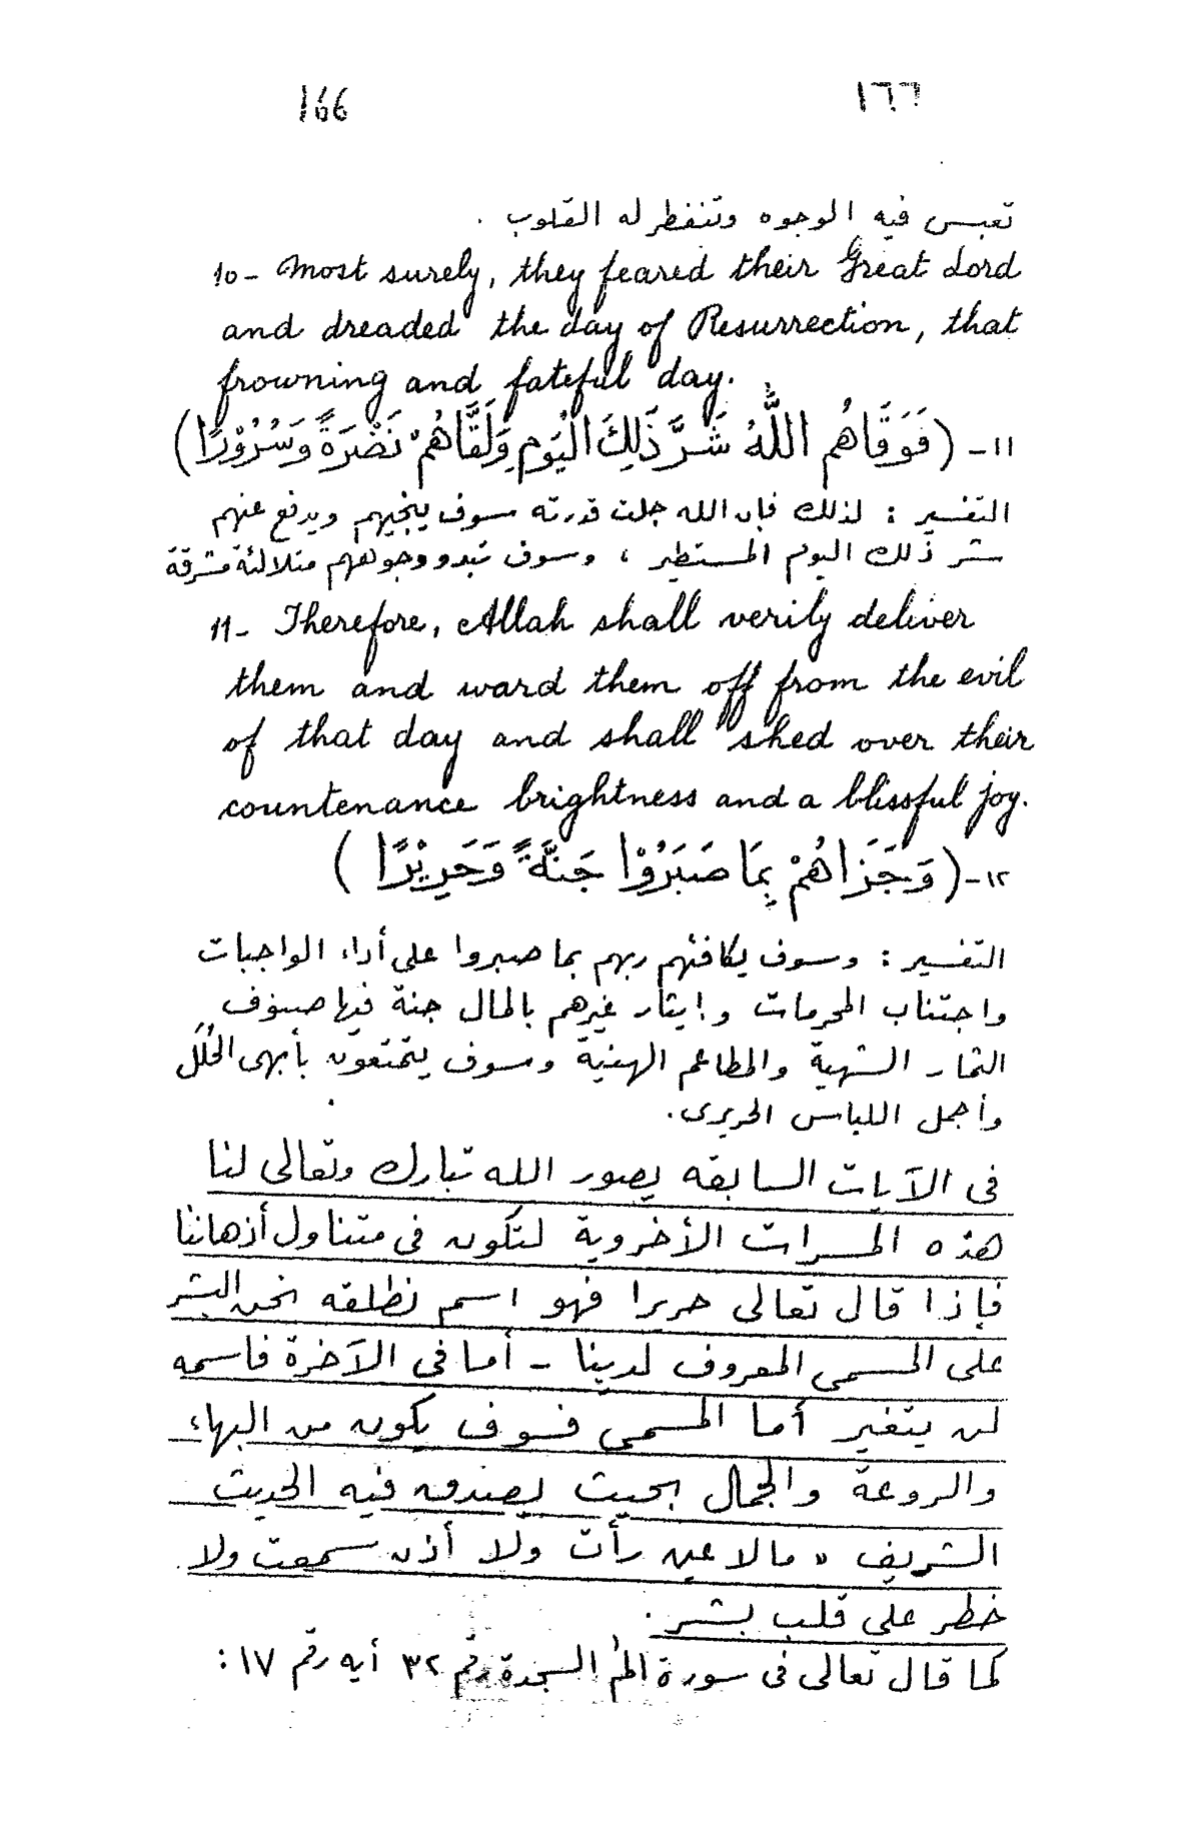 166 ١٦٦
تعبس فيه الوجوه وتنفطر له القلوب .
10- Most surely, they feared their Great Lord
and dreaded the day of Resurrection, that
frowning and fateful day.
١١- (فَوَقَاهُم اللَّهُ شَرَّ ذَلِكَ الْيَومِ وَلَقَّاهُمْ نَضْرَةً وَسُرُوْرًا)
التفسير : لذلك فإن الله جلت قدرته سوف ينجيهم ويدفع عنهم
شر ذلك اليوم المستطير ، وسوف تبدو وجوههم متلالئة مشرقة
11- Therefore, Allah shall verily deliver
them and ward them off from the evil
of that day and shall shed over their
countenance brightness and a blissful joy.
١٢- (وَجَزَاهُمْ بِمَا صَبَرُوْا جَنَّةً وَحَرِيْرًا)
التفسير : وسوف يكافئهم ربهم بما صبروا على أداء الواجبات
واجتناب المحرمات وإيثار غيرهم بالمال جنة فيها صنوف
الثمار الشهية والمطاعم الهنية وسوف يتمتعون بأبهى الحُلَل
وأجمل اللباس الحريرى .
فى الآيات السابقه يصور الله تبارك وتعالى لنا
هذه المسرات الأخروية لتكون فى متناول أذهاننا
فإذا قال تعالى حريرا فهو اسم نطلقه نحن البشر
على المسمى المعروف لدينا - أما فى الآخرة فاسمه
لن يتغير أما المسمى فسوف يكون من البهاء
والروعة والجمال بحيث يصدق فيه الحديث
الشريف " مالا عين رأت ولا أذن سمعت ولا
خطر على قلب بشر .
كما قال تعالى فى سورة الم السجدة رقم ٣٢ أيه رقم ١٧ :